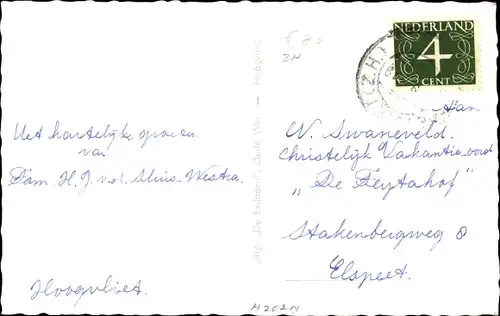 f 8=
ZH
NEDERLAND
4
CENT
(Z.H.)
Met hartelijke groeten
van
Fam. H. J. v.d. Sluis-Westra.
Hoogvliet.
Aan
W. Swaneveld.
Christelijk Vakantie-oord
"De
Stakenbergweg 8
Elspeet.
Uitg. "De
Hoogvliet
H202M